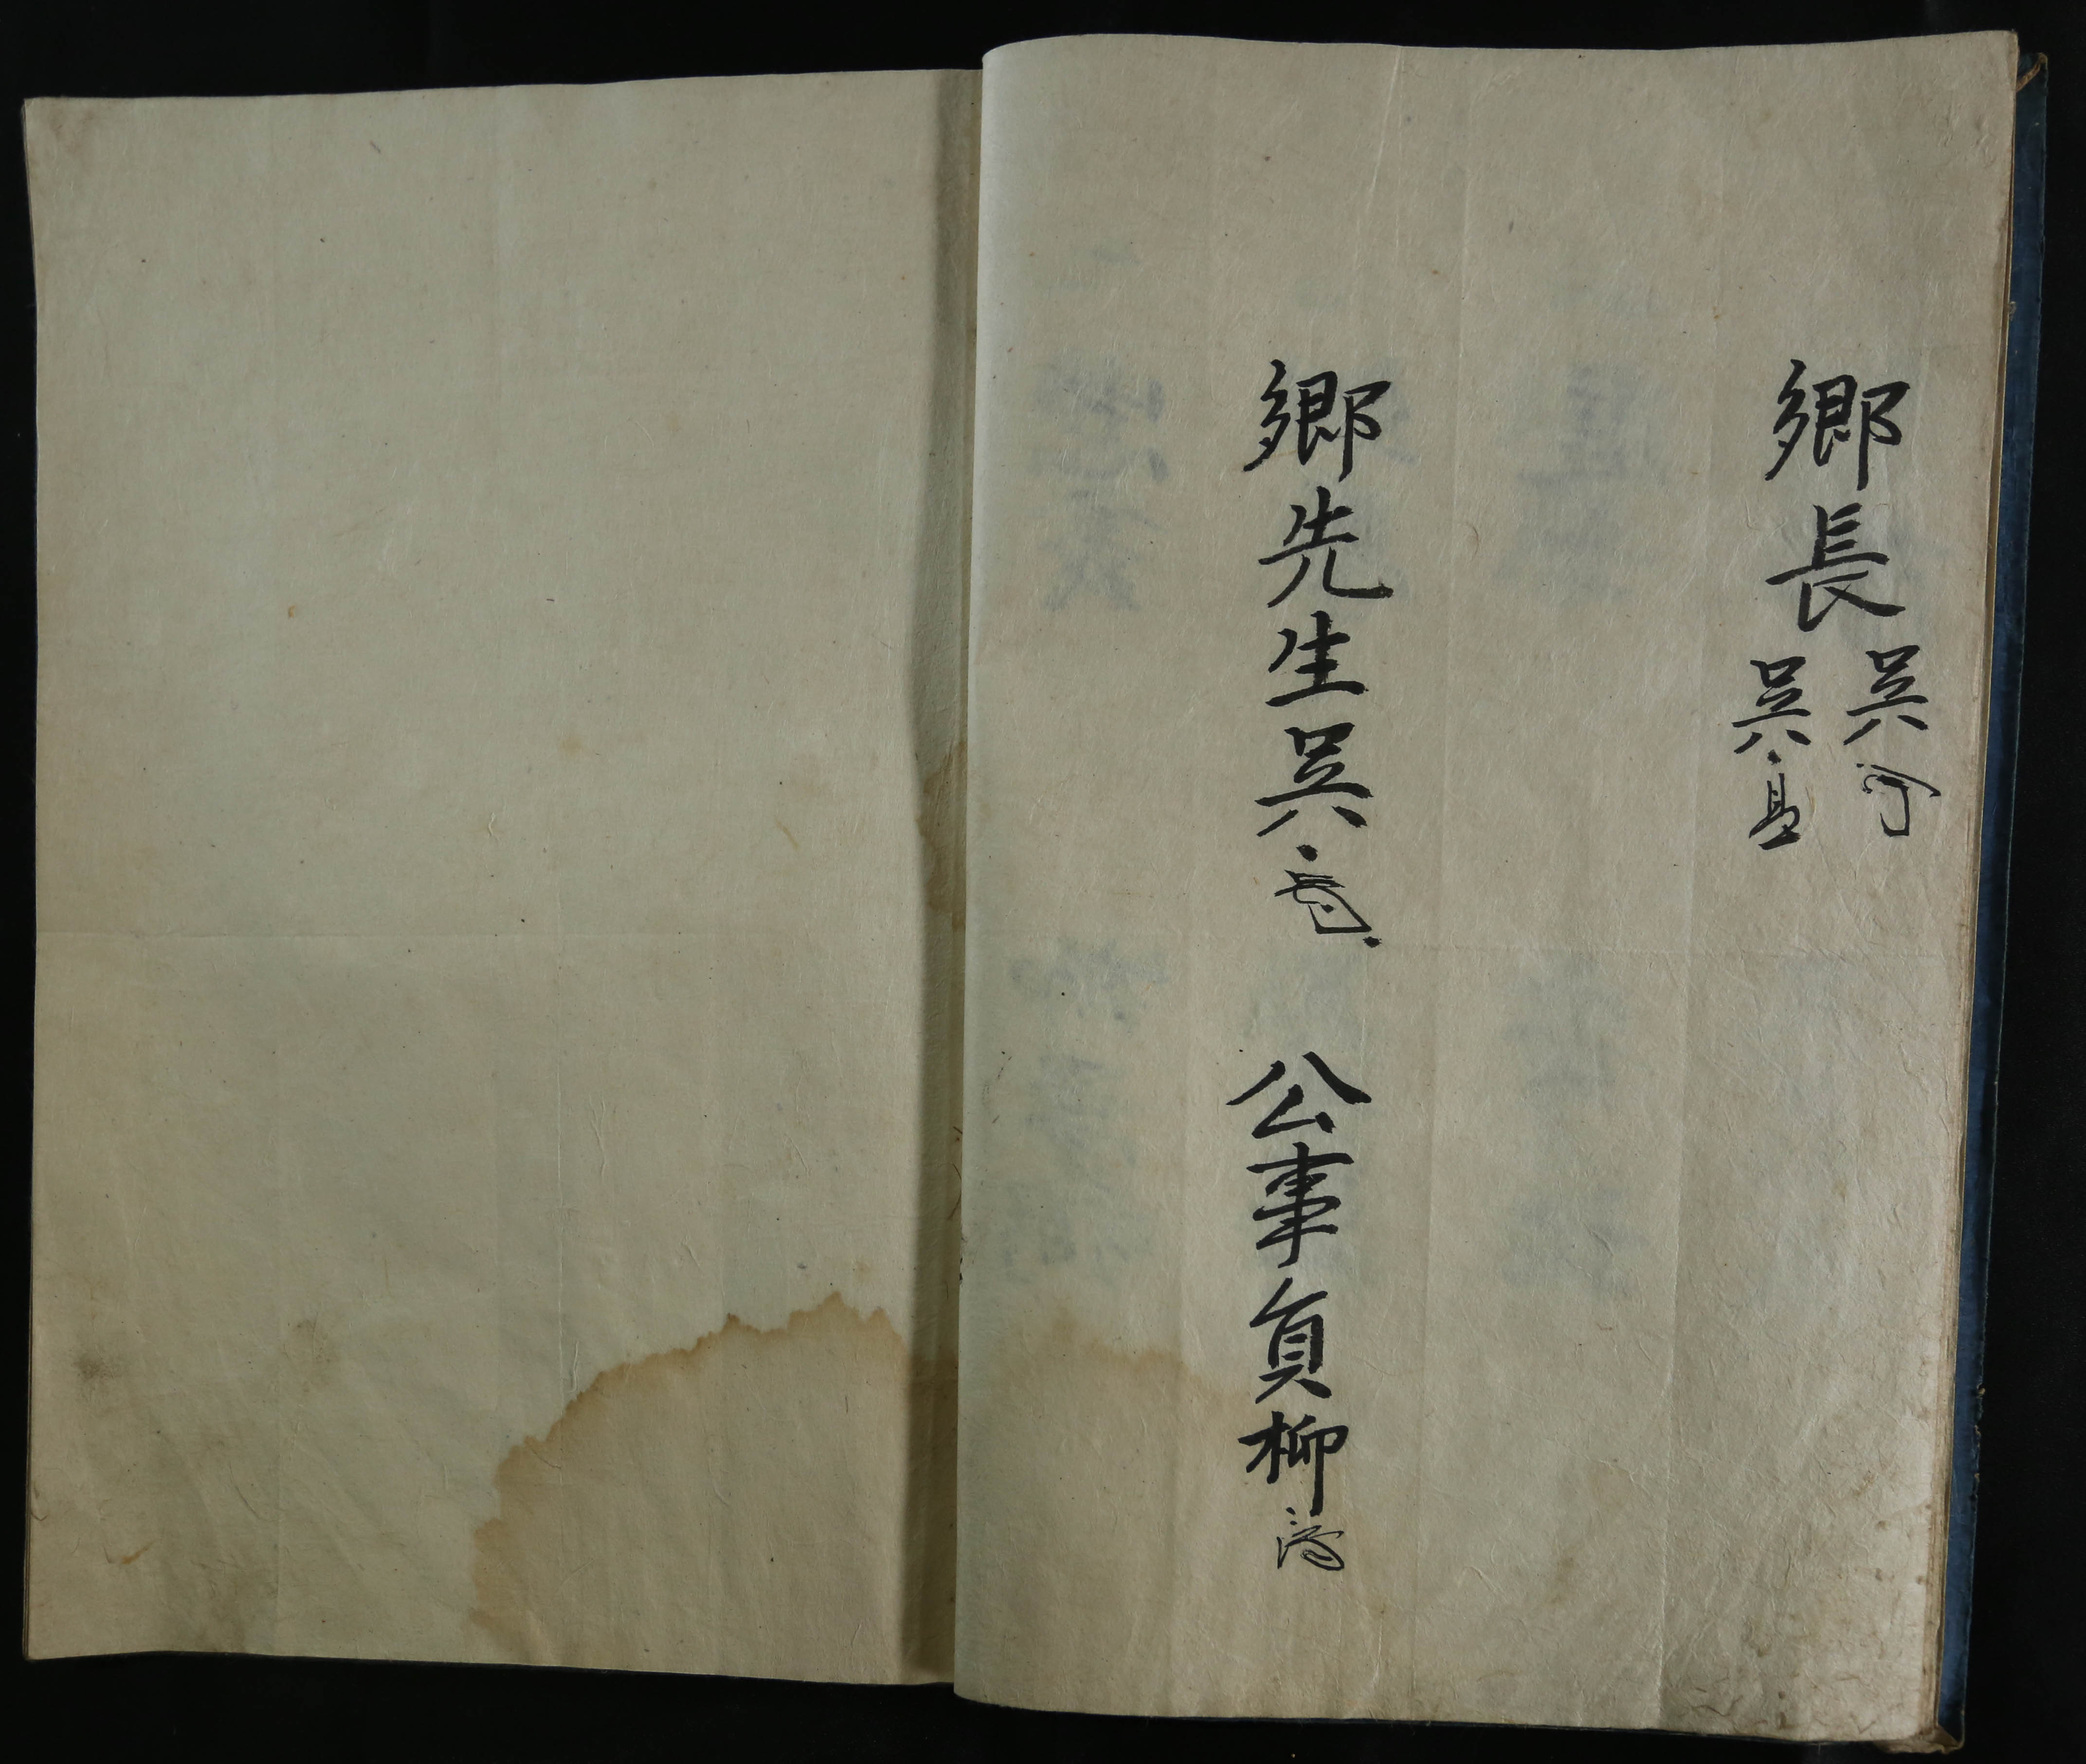 鄕長吳
吳
鄕先生吳
公事員柳